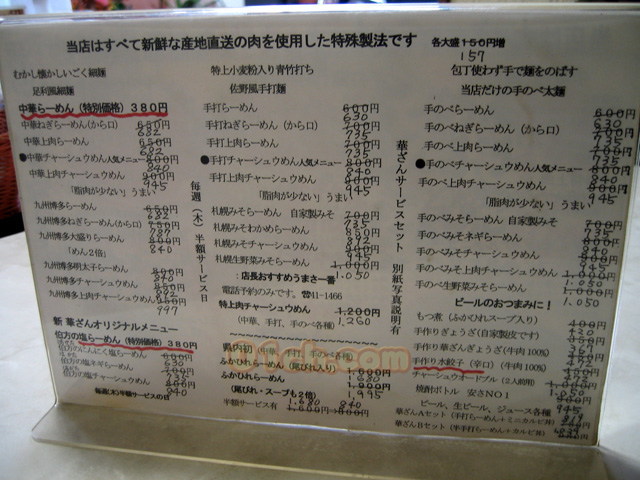 当店はすべて新鮮な産地直送の肉を使用した特殊製法です
各大盛150円増
157
むかし懐かしいごく細麺
足利風細麺
中華らーめん（特別価格）３８０円
中華ねぎらーめん(から口) 650円 682
中華上肉らーめん 650円 682
●中華チャーシュウめん人気メニュー 800円 840
中華上肉チャーシュウめん 900円 945
「脂肉が少ない」うまい
九州博多らーめん 650円 682
九州博多ねぎらーめん(から口)
九州博多大盛りらーめん 800円 840
「めん２倍」
九州博多明太子らーめん
九州博多チャーシュウめん
九州博多上肉チャーシュウめん 950円 997
新 華ざんオリジナルメニュー
伯方の塩らーめん（特別価格）380円
伯方のにんにく塩らーめん
伯方の塩ネギらーめん
伯方の塩チャーシュウめん 840
毎週（木）半額サービス日
特上小麦粉入り青竹打ち
佐野風手打麺
手打らーめん 600円 630
手打ねぎらーめん(から口) 700円 735
手打上肉らーめん 700円 735
●手打チャーシュウめん人気メニュー 800円 840
手打上肉チャーシュウめん 900円 945
「脂肉が少ない」うまい
札幌みそらーめん 自家製みそ 700円 735
札幌みそわかめらーめん
札幌みそチャーシュウめん 900円 945
札幌生野菜みそらーめん 1,000円 1.050
：店長おすすめうまさ一番
電話予約のみです。☎41-1466
特上肉チャーシュウめん 1,200円 1.260
（中華、手打、手のべ各種）
県内初（中華、手打、手のべ各種）
ふかひれらーめん（尾びれ入り） 1,600円 1.680
ふかひれらーめん 1,900円 1,995
（尾びれ・スープも２倍）
半額サービス有 1,600円→800円 1.680 840
華ざんサービスセット 別紙写真説明有
包丁使わず手で麺をのばす
当店だけの手のべ太麺
手のべらーめん 600円 630
手のべねぎらーめん(から口) 700円 735
手のべ上肉らーめん 700円 735
●手のべチャーシュウめん人気メニュー 800円 840
手のべ上肉チャーシュウめん 900円 945
「脂肉が少ない」うまい
手のべみそらーめん 自家製みそ 700円 735
手のべみそネギらーめん
手のべみそチャーシュウめん
手のべみそ上肉チャーシュウめん 1,000円 1.050
手のべ生野菜みそらーめん 1,000円 1.050
ビールのおつまみに！
もつ煮（ふかひれスープ入り）
手作りぎょうざ（自家製皮です）
手作り華ざんぎょうざ(牛肉100%)
手作り水餃子（辛口）(牛肉100%)
チャーシュウオードブル（２人前用） 1,000円 1.050
焼酎ボトル 安さＮＯ１
ビール、生ビール、ジュース各種
華ざんＡセット（手打らーめん＋ミニカルビ丼） 945
華ざんＢセット（半手打らーめん＋カルビ丼）